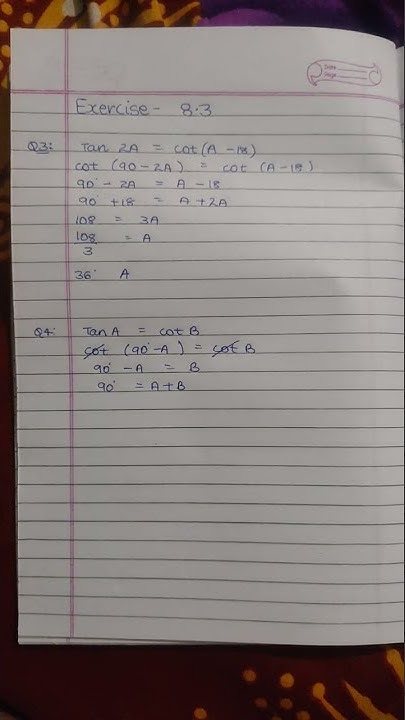 Date
Page
Exercise - 8.3
Q3: Tan 2A = cot(A - 18)
cot (90 - 2A) = cot (A - 18)
90° - 2A = A - 18
90° + 18 = A + 2A
108 = 3A
108 = A
3
36° A
Q4: Tan A = cot B
cot (90° - A) = cot B
90° - A = B
90° = A + B